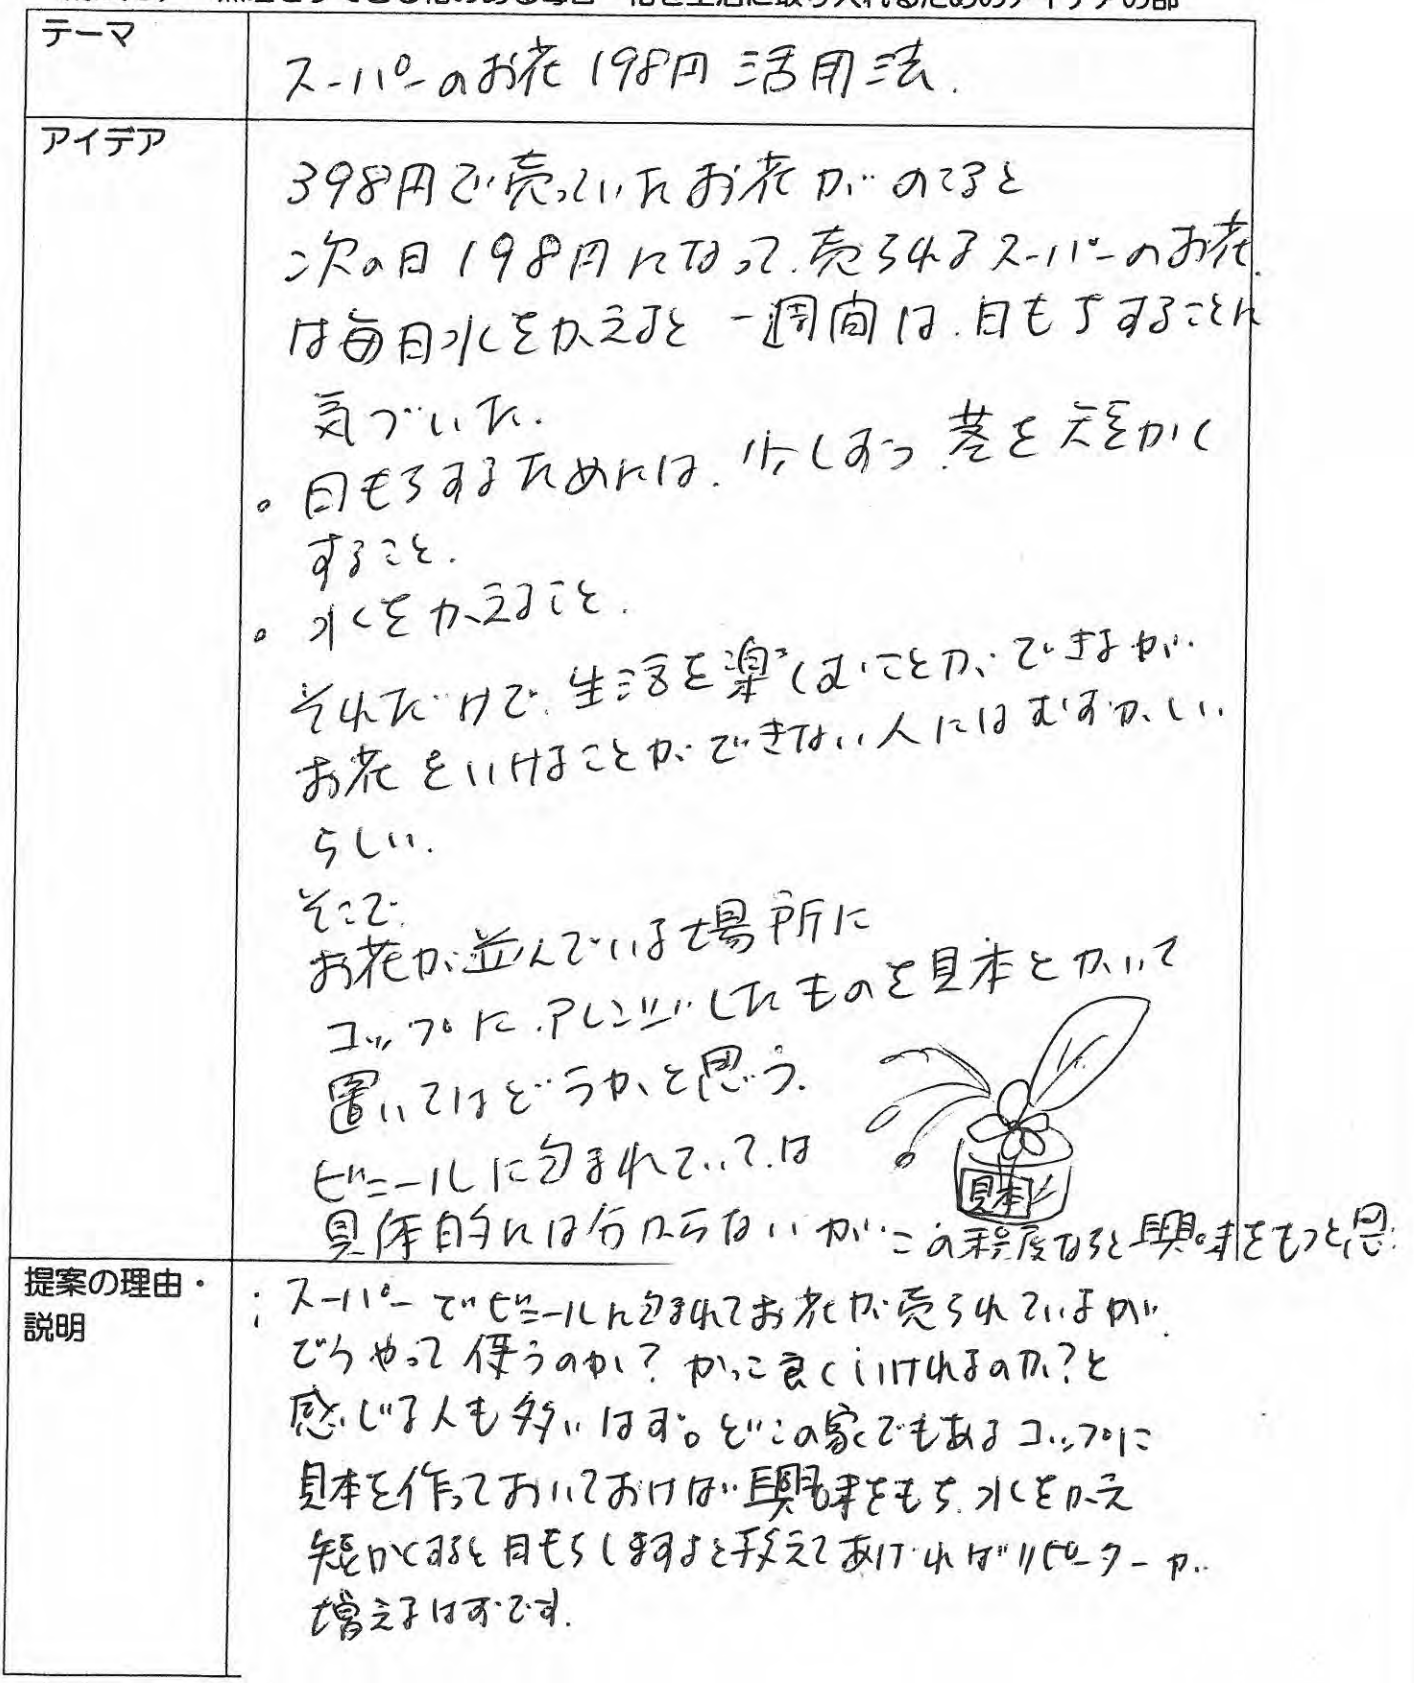 テーマ
スーパーのお花198円活用法.
アイデア
398円で売っていたお花がのこると
次の日198円になって、売られるスーパーのお花
は毎日水をかえると一週間は、日もちすることに
気づいた.
。日もちするためには、少しずつ、茎を短かく
すること.
。水をかえること.
それだけで、生活を楽しむことができるが
お花をいけることができない人にはむずかしい
らしい.
そこで、
お花が並んでいる場所に
コップに、アレンジしたものを見本とかいて
置いてはどうかと思う.
ビニールに包まれていては
見本
具体的には分からないがこの程度ならと興味をもつと思
提案の理由・
説明
:スーパーでビニールに包まれてお花が売られているが、
どうやって使うのか?かっこ良くいけれるのか?と
感じる人も多いはず。どこの家でもあるコップに
見本を作っておいておけば興味をもち、水をかえ
短かくすると日もちしますよと教えてあげればリピーターが
増えるはずです.